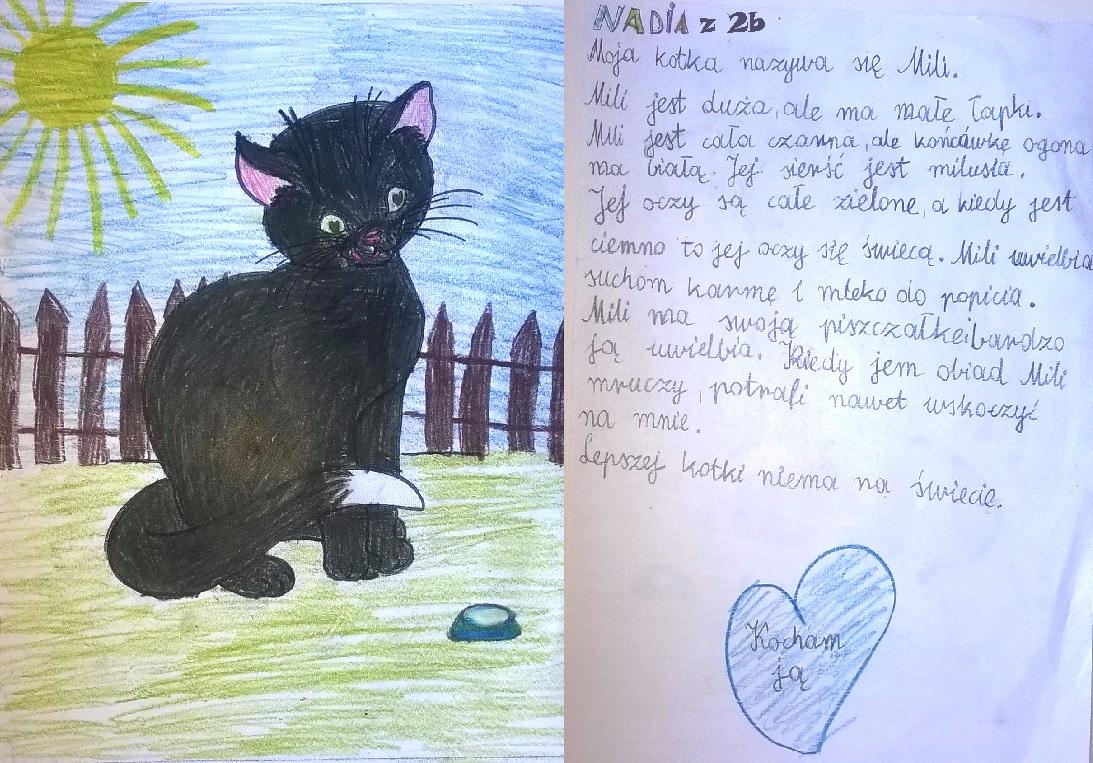 NADIA z 2b
Moja kotka nazywa się Mili.
Mili jest duża, ale ma małe łapki.
Mili jest cała czarna, ale końcówkę ogona
ma białą. Jej sierść jest milusia.
Jej oczy są całe zielone, a kiedy jest
ciemno to jej oczy się świecą. Mili uwielbia
suchom karmę i mleko do popicia.
Mili ma swoją piszczałkę i bardzo
ją uwielbia. Kiedy jem obiad Mili
mruczy, potrafi nawet wskoczyć
na mnie.
Lepszej kotki niema na świecię.
Kocham
ją